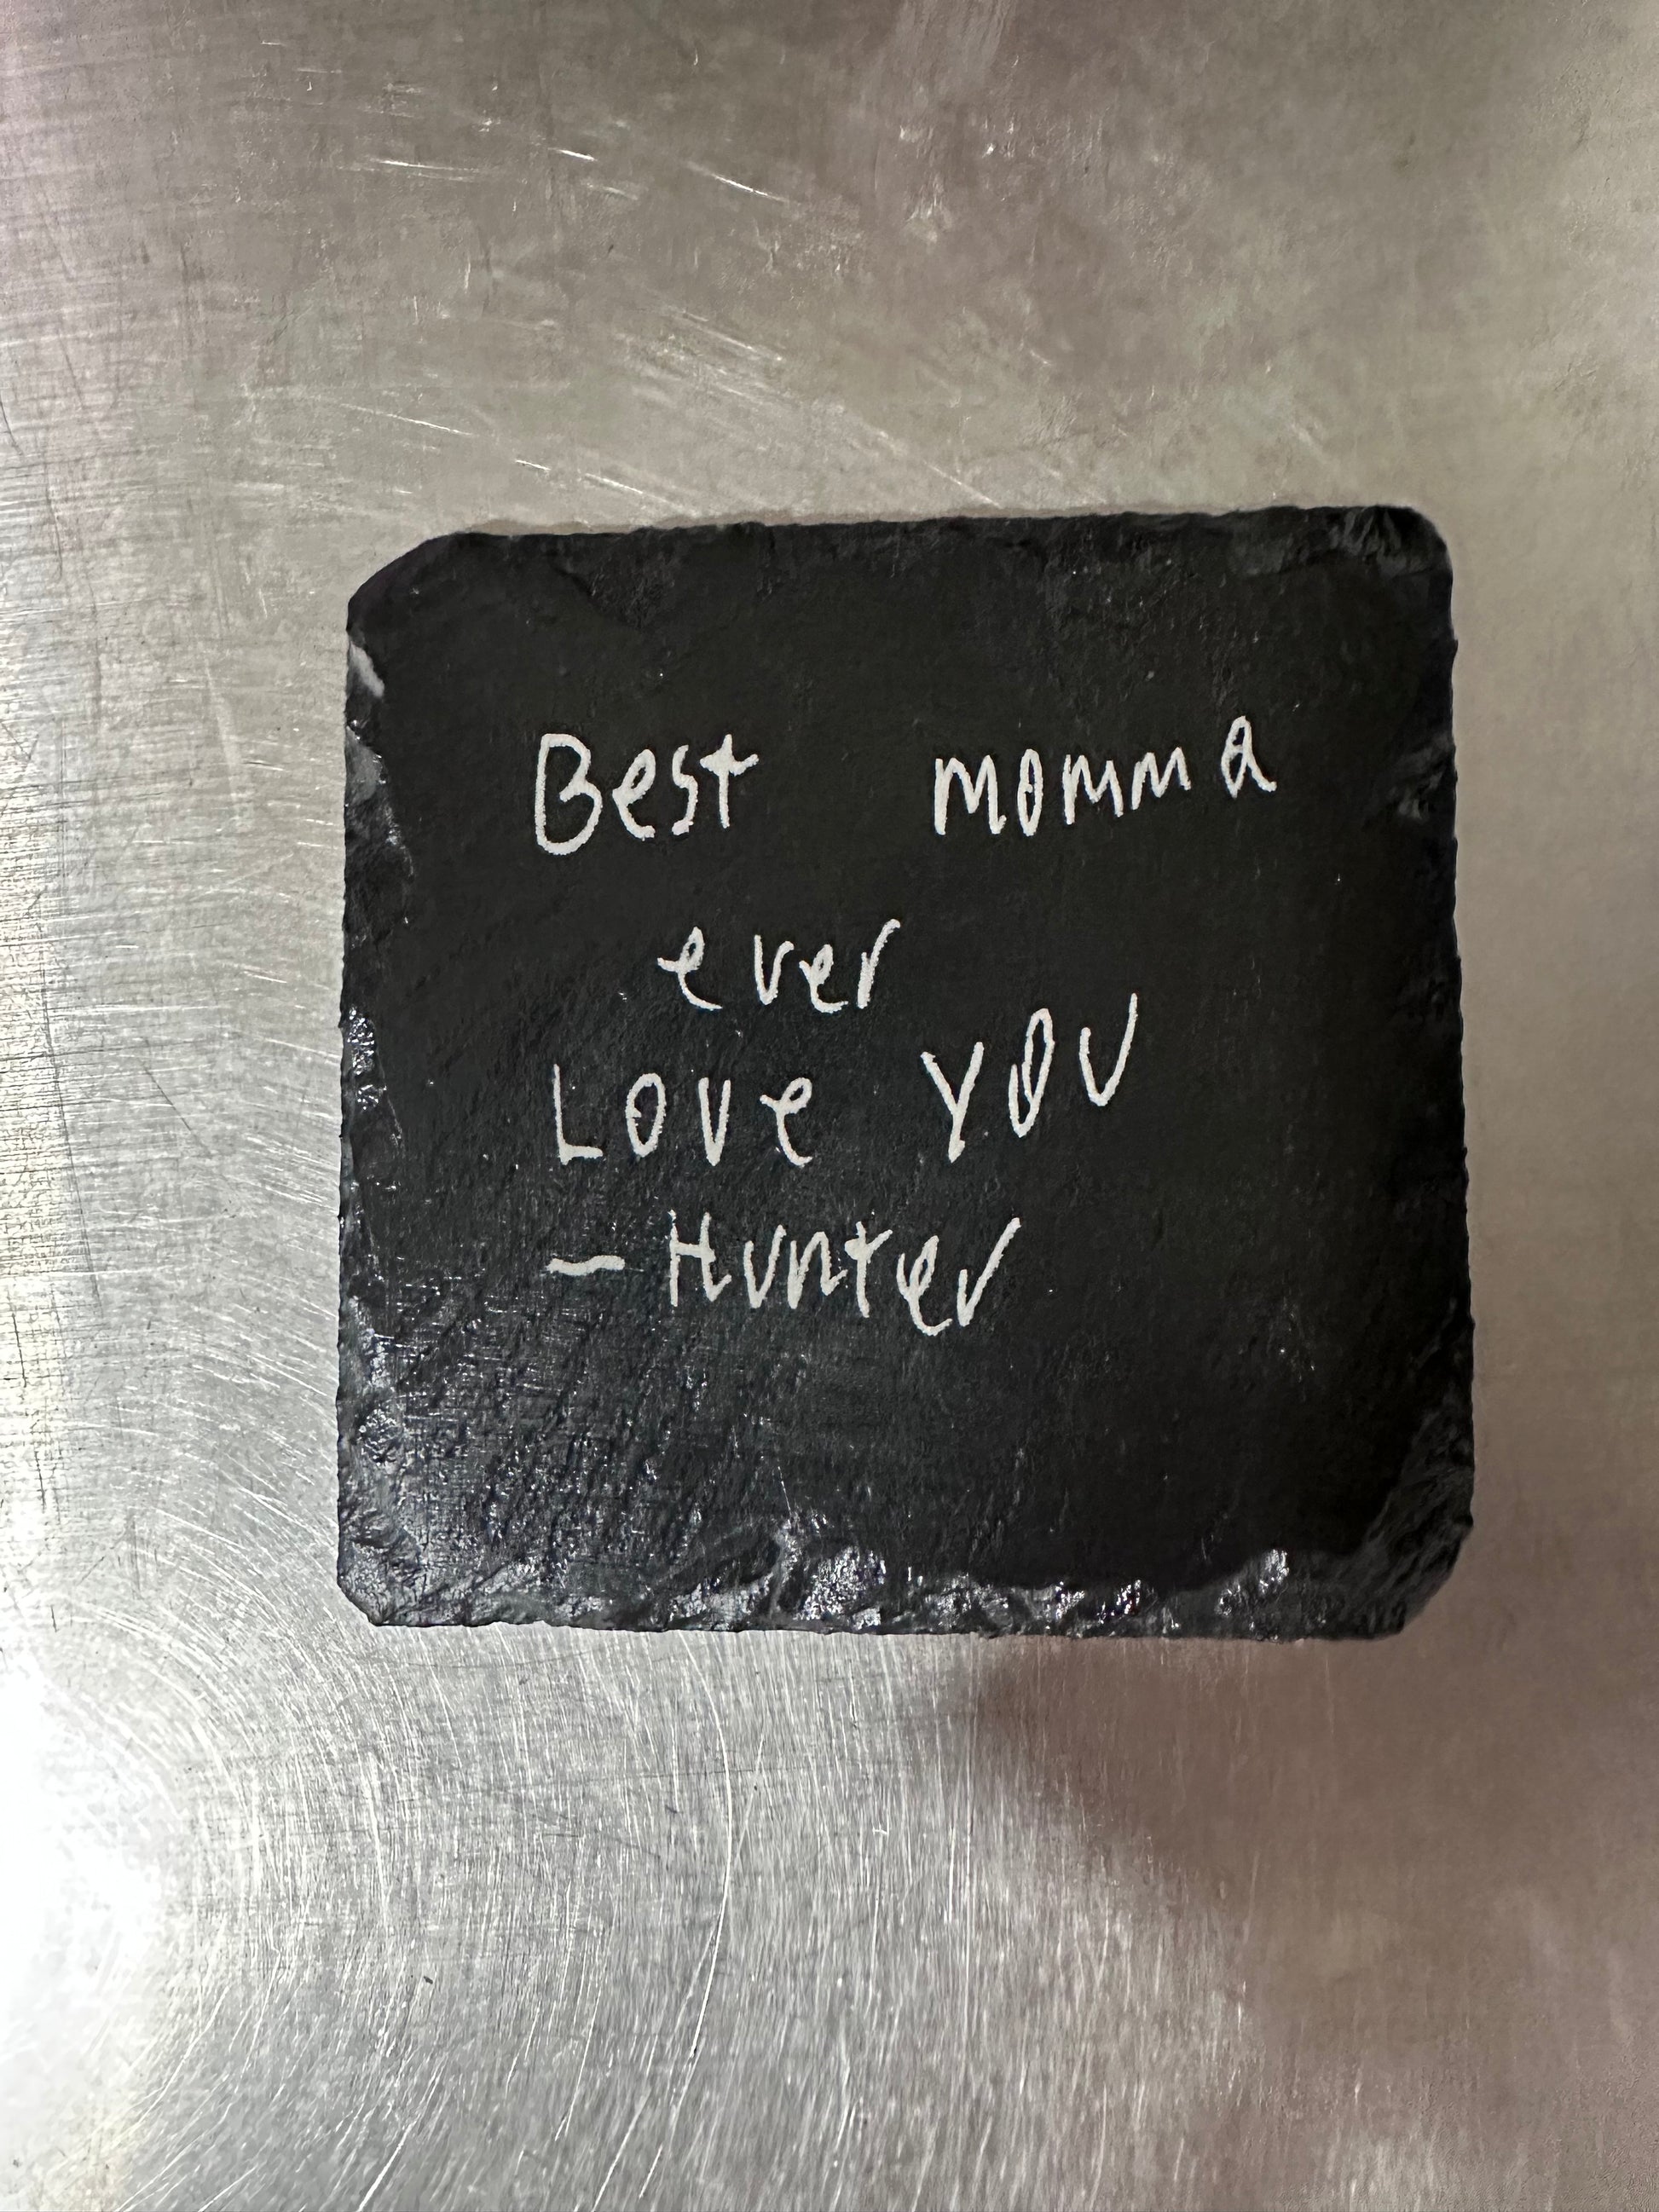 Best momma
ever
Love YOU
- Hunter